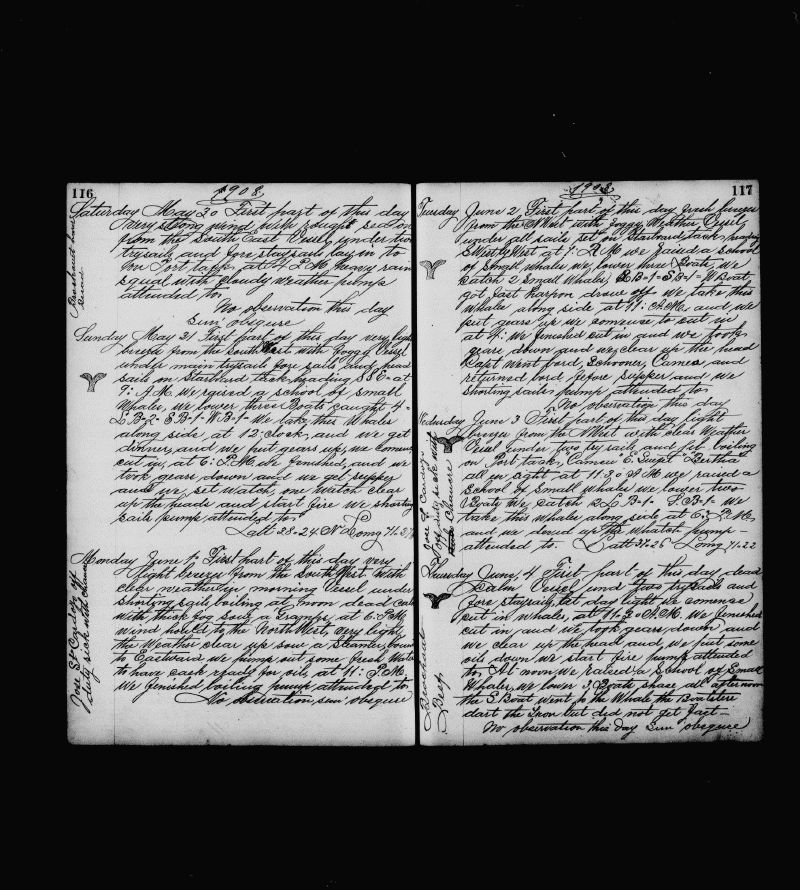 116
1908
Saturday May 30 First part of this day
very strong wind with rought sea on
from the South East Vessel under two
trysails and fore staysails lay in to
on Port tack, at 4. P.M. heavy rain
squal with cloudy weather pump
attended to.
No observation this day
Sun obsgure
Sunday May 31 First part of this day very light
breeze from the South West with foggy Vessel
under main trysails fore sails and head
sails on Starboard tack heading S S E at
9. A.M. We raised a school of small
Whales, we lower three Boats caught 4-
L.B-2- S.B-1- W.B-1- We take this Whales
along side at 12. clock, and we get
dinner, and we put gears up, we comence
cut in, at 6. P.M. we fenished, and we
took gears down and we get supper
and we set watch, one watch clear
up the heads and start fire we shorting
sails pump attended to.
Latt 38-24 N Long 71-37
Monday June 1. First part of this day very
light breeze from the South West. With
clear weather in morning Vessel under
shorting sails boiling at noon dead calm
with thick fog sow a Tramps at 6. P.M.
wind hould to the North West, very light
the Weather clear up sow a Steamer, bound
to Eastward we pump out some fresh Water
to have cask ready for oils, at 11. P.M.
We fenished boiling pump attended to
No observation, sun obsgure
Jose St Cardoza off
duty sick with
117
1908
Tuesday June 2 First part of this day fresh breeze
from the S West with foggy Weather Vessel
under all sails set on Starboard tack, heading
West at 9. A.M. we raised a school
of small whales we lower three Boats, we
catch 2 small Whales, L.B-1- S.B-1- W Boat
got fast harpon drow off we take this
whales along side at 11. A.M. and we
put gears up we comence to cut in
at 4. we fenished cut in and we took
gears down and we clear up the head
Capt went bord, Schooner, Cameo and
returned bord before supper and we
shorting sails pump attended to
No observation this day
Wedsday June 3 First part of this day light
breeze from the N West with clear Weather
Vessel under two try sails and jib boiling
on Port tack, Cameo E. Bertha
all in sight at 11.30 A M we raised a
school of small whales we lower two
Boats we catch 2 L.B-1- S.B-1- We
take this whales along side at 6. P.M.
and we up The whatch pump
attended to. Latt 37-26 Long 71-22
Jose St Cardoza
off duty sick with
Thursday June 4 First part of this day dead
calm Vessel und two trysails and
fore staysail, at day light we comence
cut in whales, at 11.30 A.M. We fenished
cut in and we took gears down and
we clear up the head and we put some
oils down we start fire pump attended
to. At noon we raised a School of Small
Whales, we lower 3 Boats chase all afternoon
the S Boat went to the Whale the Boatstere
dart the Iron but did not get Fast-
No observation this day Sun obsgure